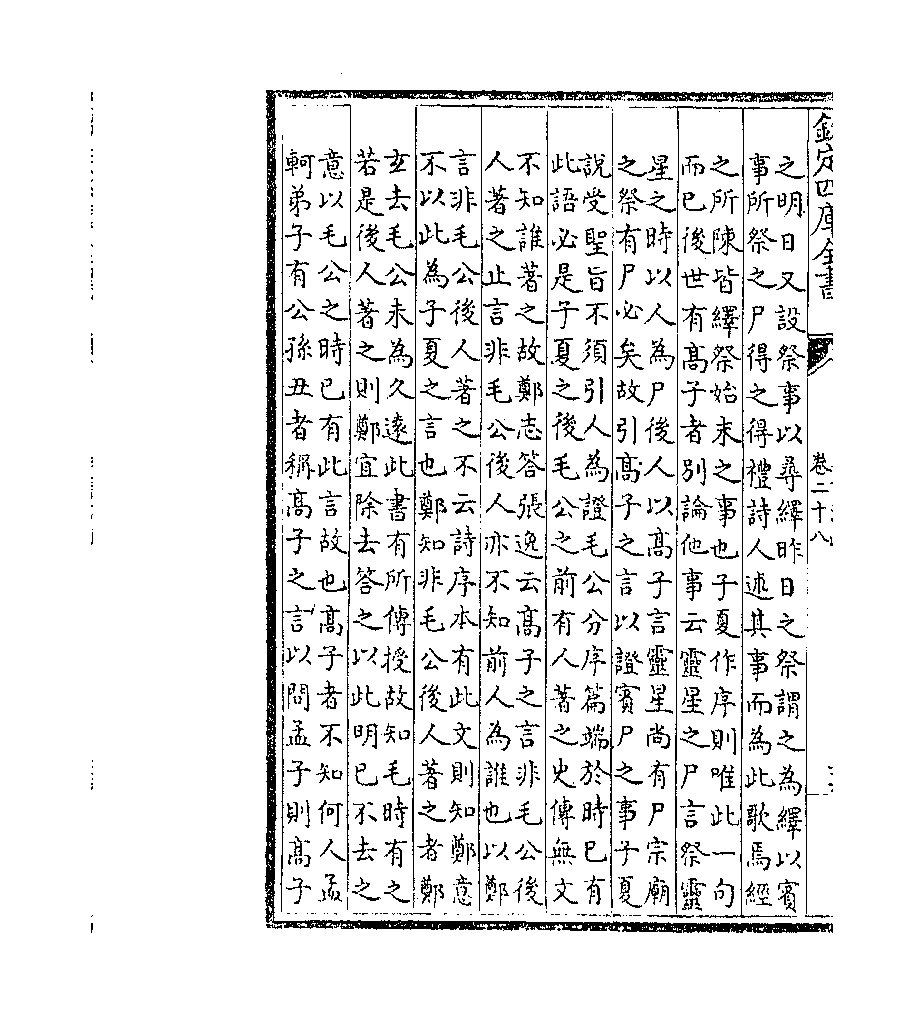 欽定四庫全書
卷二十八
之明日又設祭事以尋繹昨日之祭謂之為繹以賓
事所祭之尸得之得禮詩人述其事而為此歌焉經
之所陳皆繹祭始末之事也子夏作序則唯此一句
而已後世有髙子者別論他事云靈星之尸言祭靈
星之時以人為尸後人以髙子言靈星尚有尸宗廟
之祭有尸必矣故引髙子之言以證賓尸之事子夏
說受聖旨不須引人為證毛公分序篇端於時已有
此語必是子夏之後毛公之前有人著之史傳無文
不知誰著之故鄭志答張逸云髙子之言非毛公後
人著之止言非毛公後人亦不知前人為誰也以鄭
言非毛公後人著之不云詩序本有此文則知鄭意
不以此為子夏之言也鄭知非毛公後人著之者鄭
玄去毛公未為久遠此書有所傳授故知毛時有之
若是後人著之則鄭宜除去答之以此明已不去之
意以毛公之時已有此言故也髙子者不知何人孟
軻弟子有公孫丑者稱髙子之言以問孟子則髙子